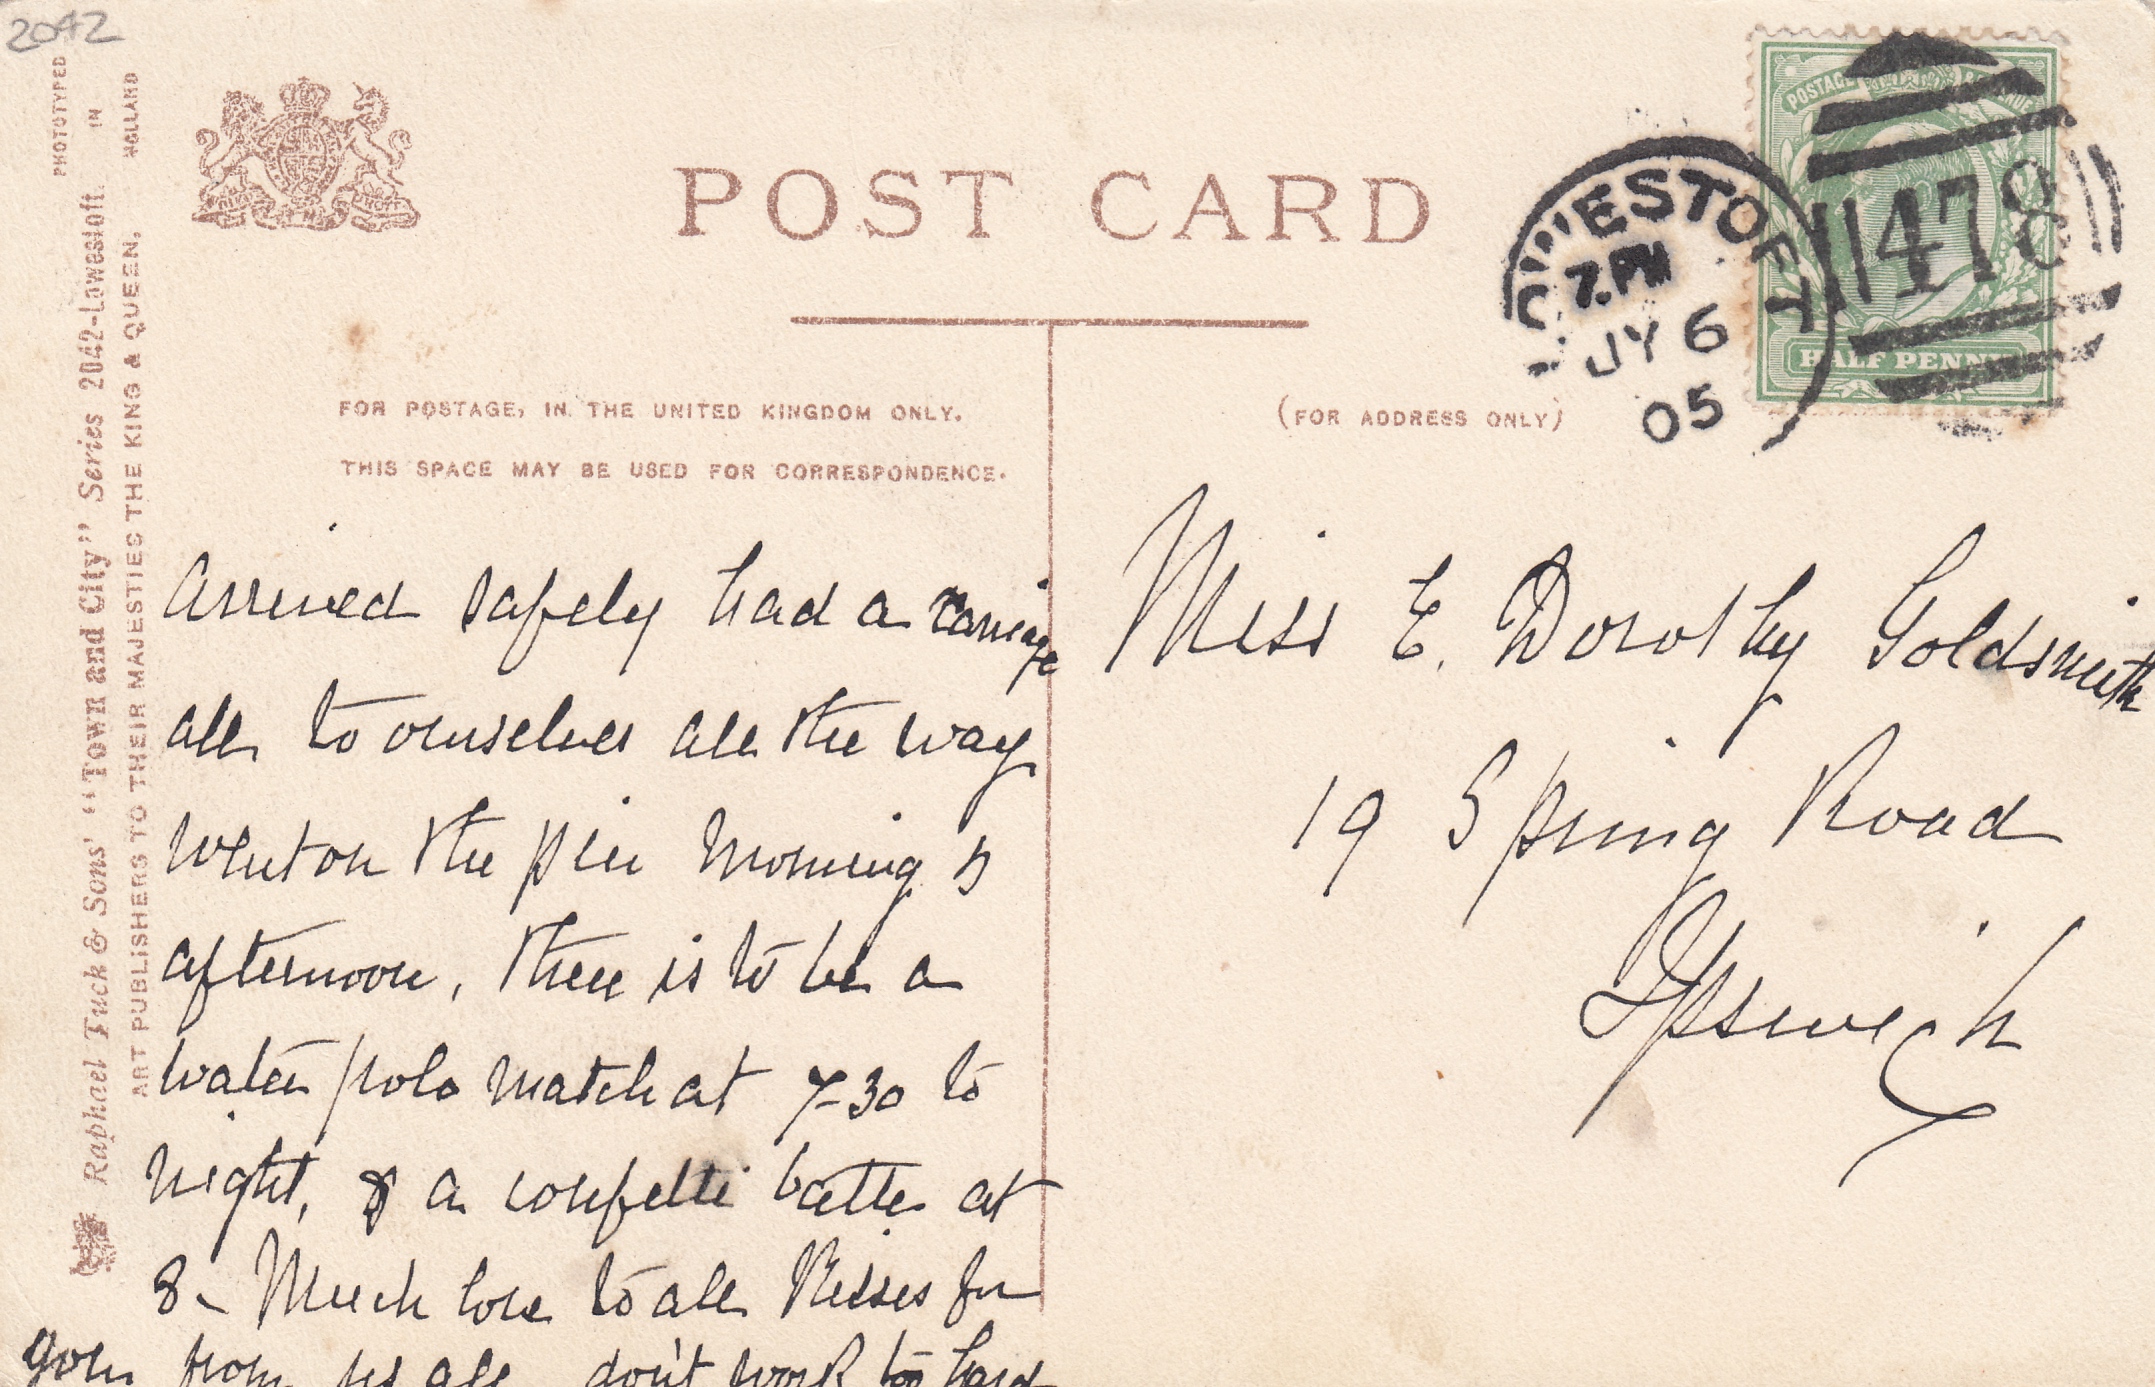 2042
PHOTOTYPED IN HOLLAND
Raphael Tuck & Sons' "Town and City" Series 2042-Lowestoft.
ART PUBLISHERS TO THEIR MAJESTIES THE KING & QUEEN.
POST CARD
FOR POSTAGE, IN THE UNITED KINGDOM ONLY.
THIS SPACE MAY BE USED FOR CORRESPONDENCE.
(FOR ADDRESS ONLY)
POSTAGE & REVENUE
HALF PENNY
LOWESTOFT
7.PM
JY 6
05
478
Arrived safely had a carriage
all to ourselves all the way
went on the pier morning &
afternoon, there is to be a
water polo match at 7-30 to
night, & a confetti battle at
8- Much love to all Kisses for
you from us all don't work too hard
Miss E. Dorothy Goldsmith
19 Spring Road
Ipswich